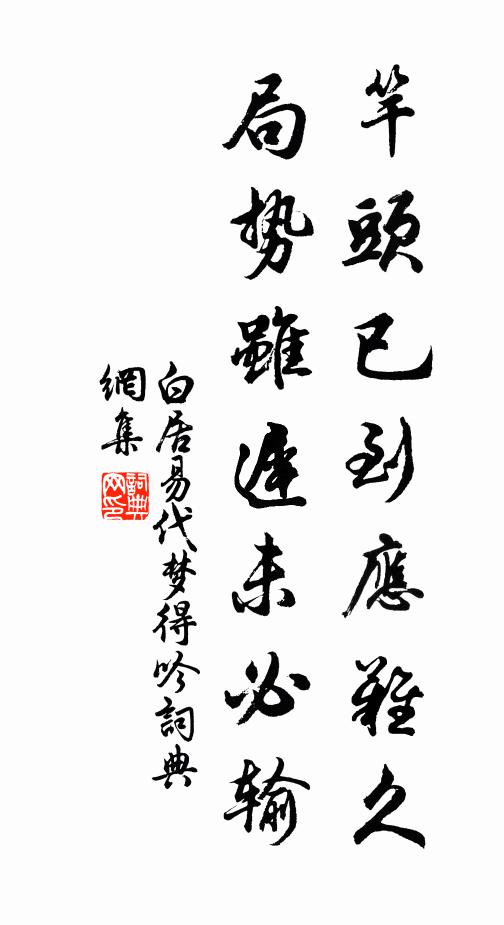 竿頭已到應難久
局势雖遲未必输
白居易代梦得吟詞典
網集
詞典
网印